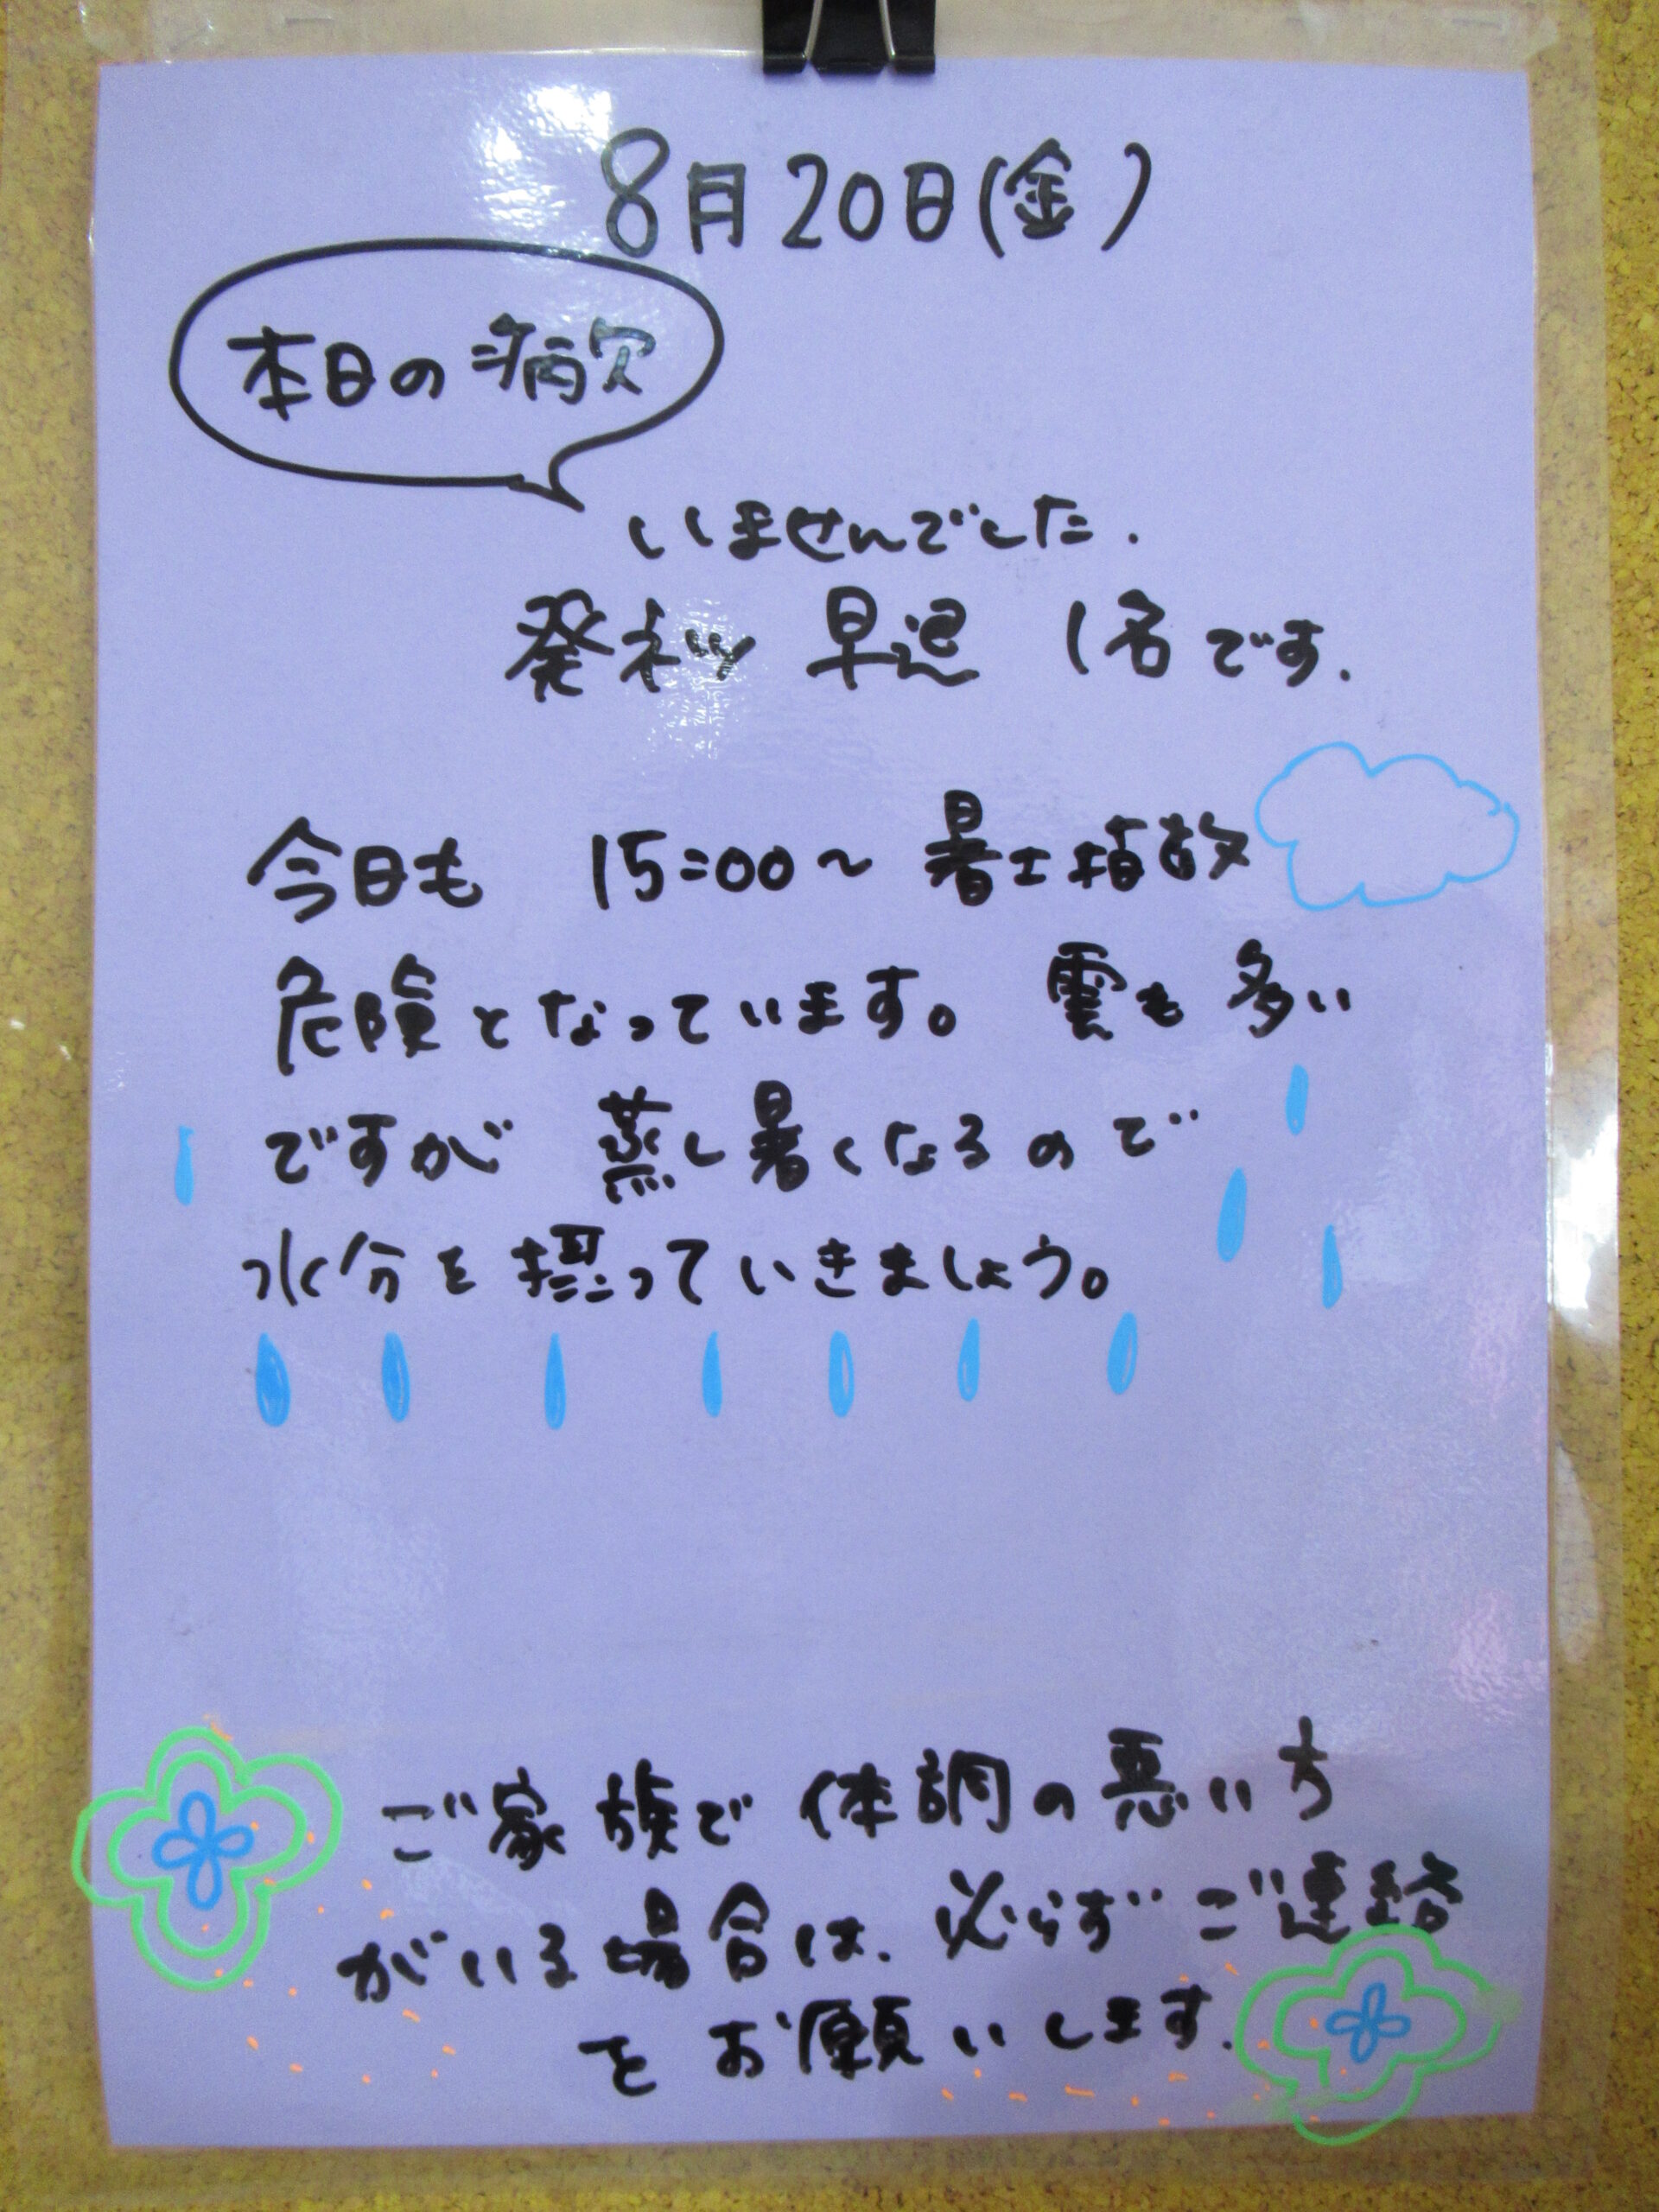 8月20日(金)
本日の病欠
いませんでした.
発ネツ 早退 1名です.
今日も 15:00〜 暑さ指数
危険となっています。雲も多い
ですが 蒸し暑くなるので
水分を摂っていきましょう。
ご家族で体調の悪い方
がいる場合は、必らずご連絡
をお願いします.